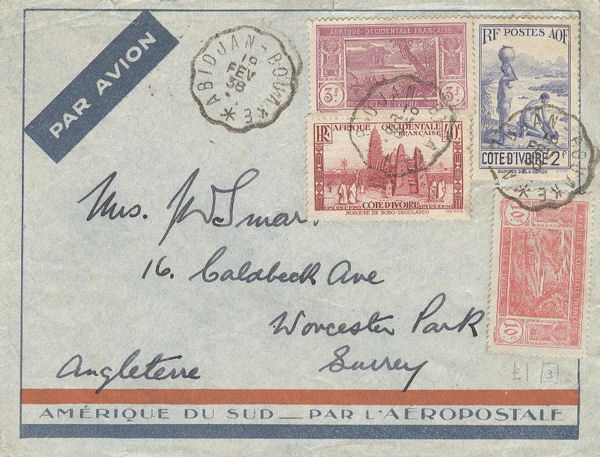 PAR AVION
* ABIDJAN-BOUAKE
FEV
38
AFRIQUE OCCIDENTALE FRANÇAISE
3F 3F
COTE D'IVOIRE
RF POSTES AOF
COTE D'IVOIRE 2F
RAPIDES DE LA COMOE
RF AFRIQUE OCCIDENTALE FRANÇAISE
POSTES CÔTE D'IVOIRE POSTES
MOSQUEE DE BOBO-DIOULASSO
10c 10c
Mrs. Smart
16. Caldbeck Ave
Worcester Park
Surrey
Angleterre
£1 3
AMÉRIQUE DU SUD — PAR L'AÉROPOSTALE